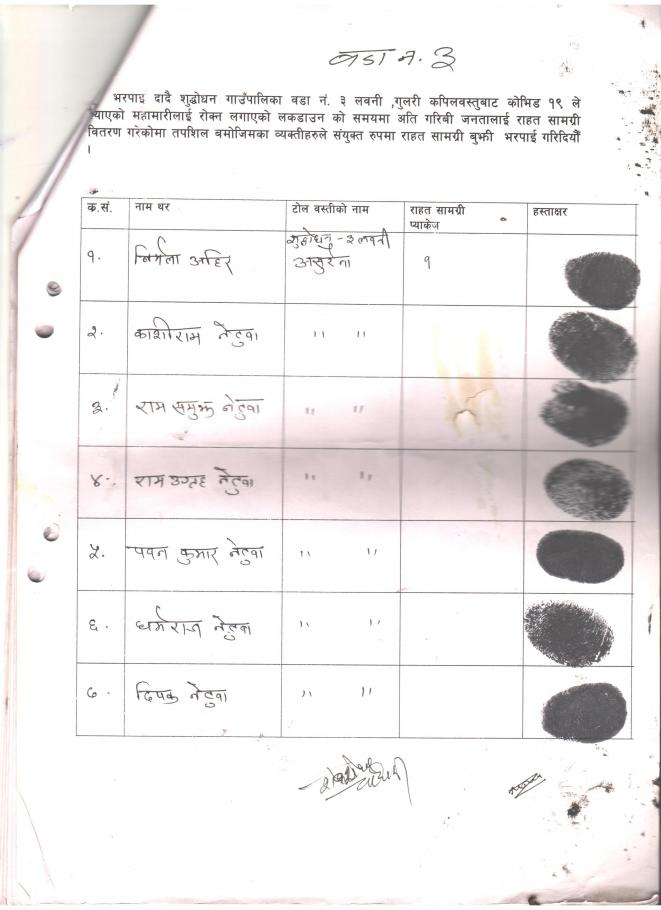 वडा न. ३
भरपाइ दादै शुद्धोधन गाउँपालिका वडा नं. ३ लवनी ,गुलरी कपिलवस्तुबाट कोभिड १९ ले
ल्याएको महामारीलाई रोक्न लगाएको लकडाउन को समयमा अति गरिबी जनतालाई राहत सामग्री
वितरण गरेकोमा तपशिल बमोजिमका व्यक्तीहरुले संयुक्त रुपमा राहत सामग्री बुझी भरपाई गरिदियौँ
।
क.सं. नाम थर टोल वस्तीको नाम राहत सामग्री प्याकेज हस्ताक्षर
शुद्धोधन - ३ लवनी
१. निर्मला अहिर असुरेना १
२. काशीराम नेटुवा " "
३. राम समुझ नेटुवा " "
४. राम उग्रह नेटुवा " "
५. पवन कुमार नेटुवा " "
६. धर्मराज नेटुवा " "
७. दिपक नेटुवा " "